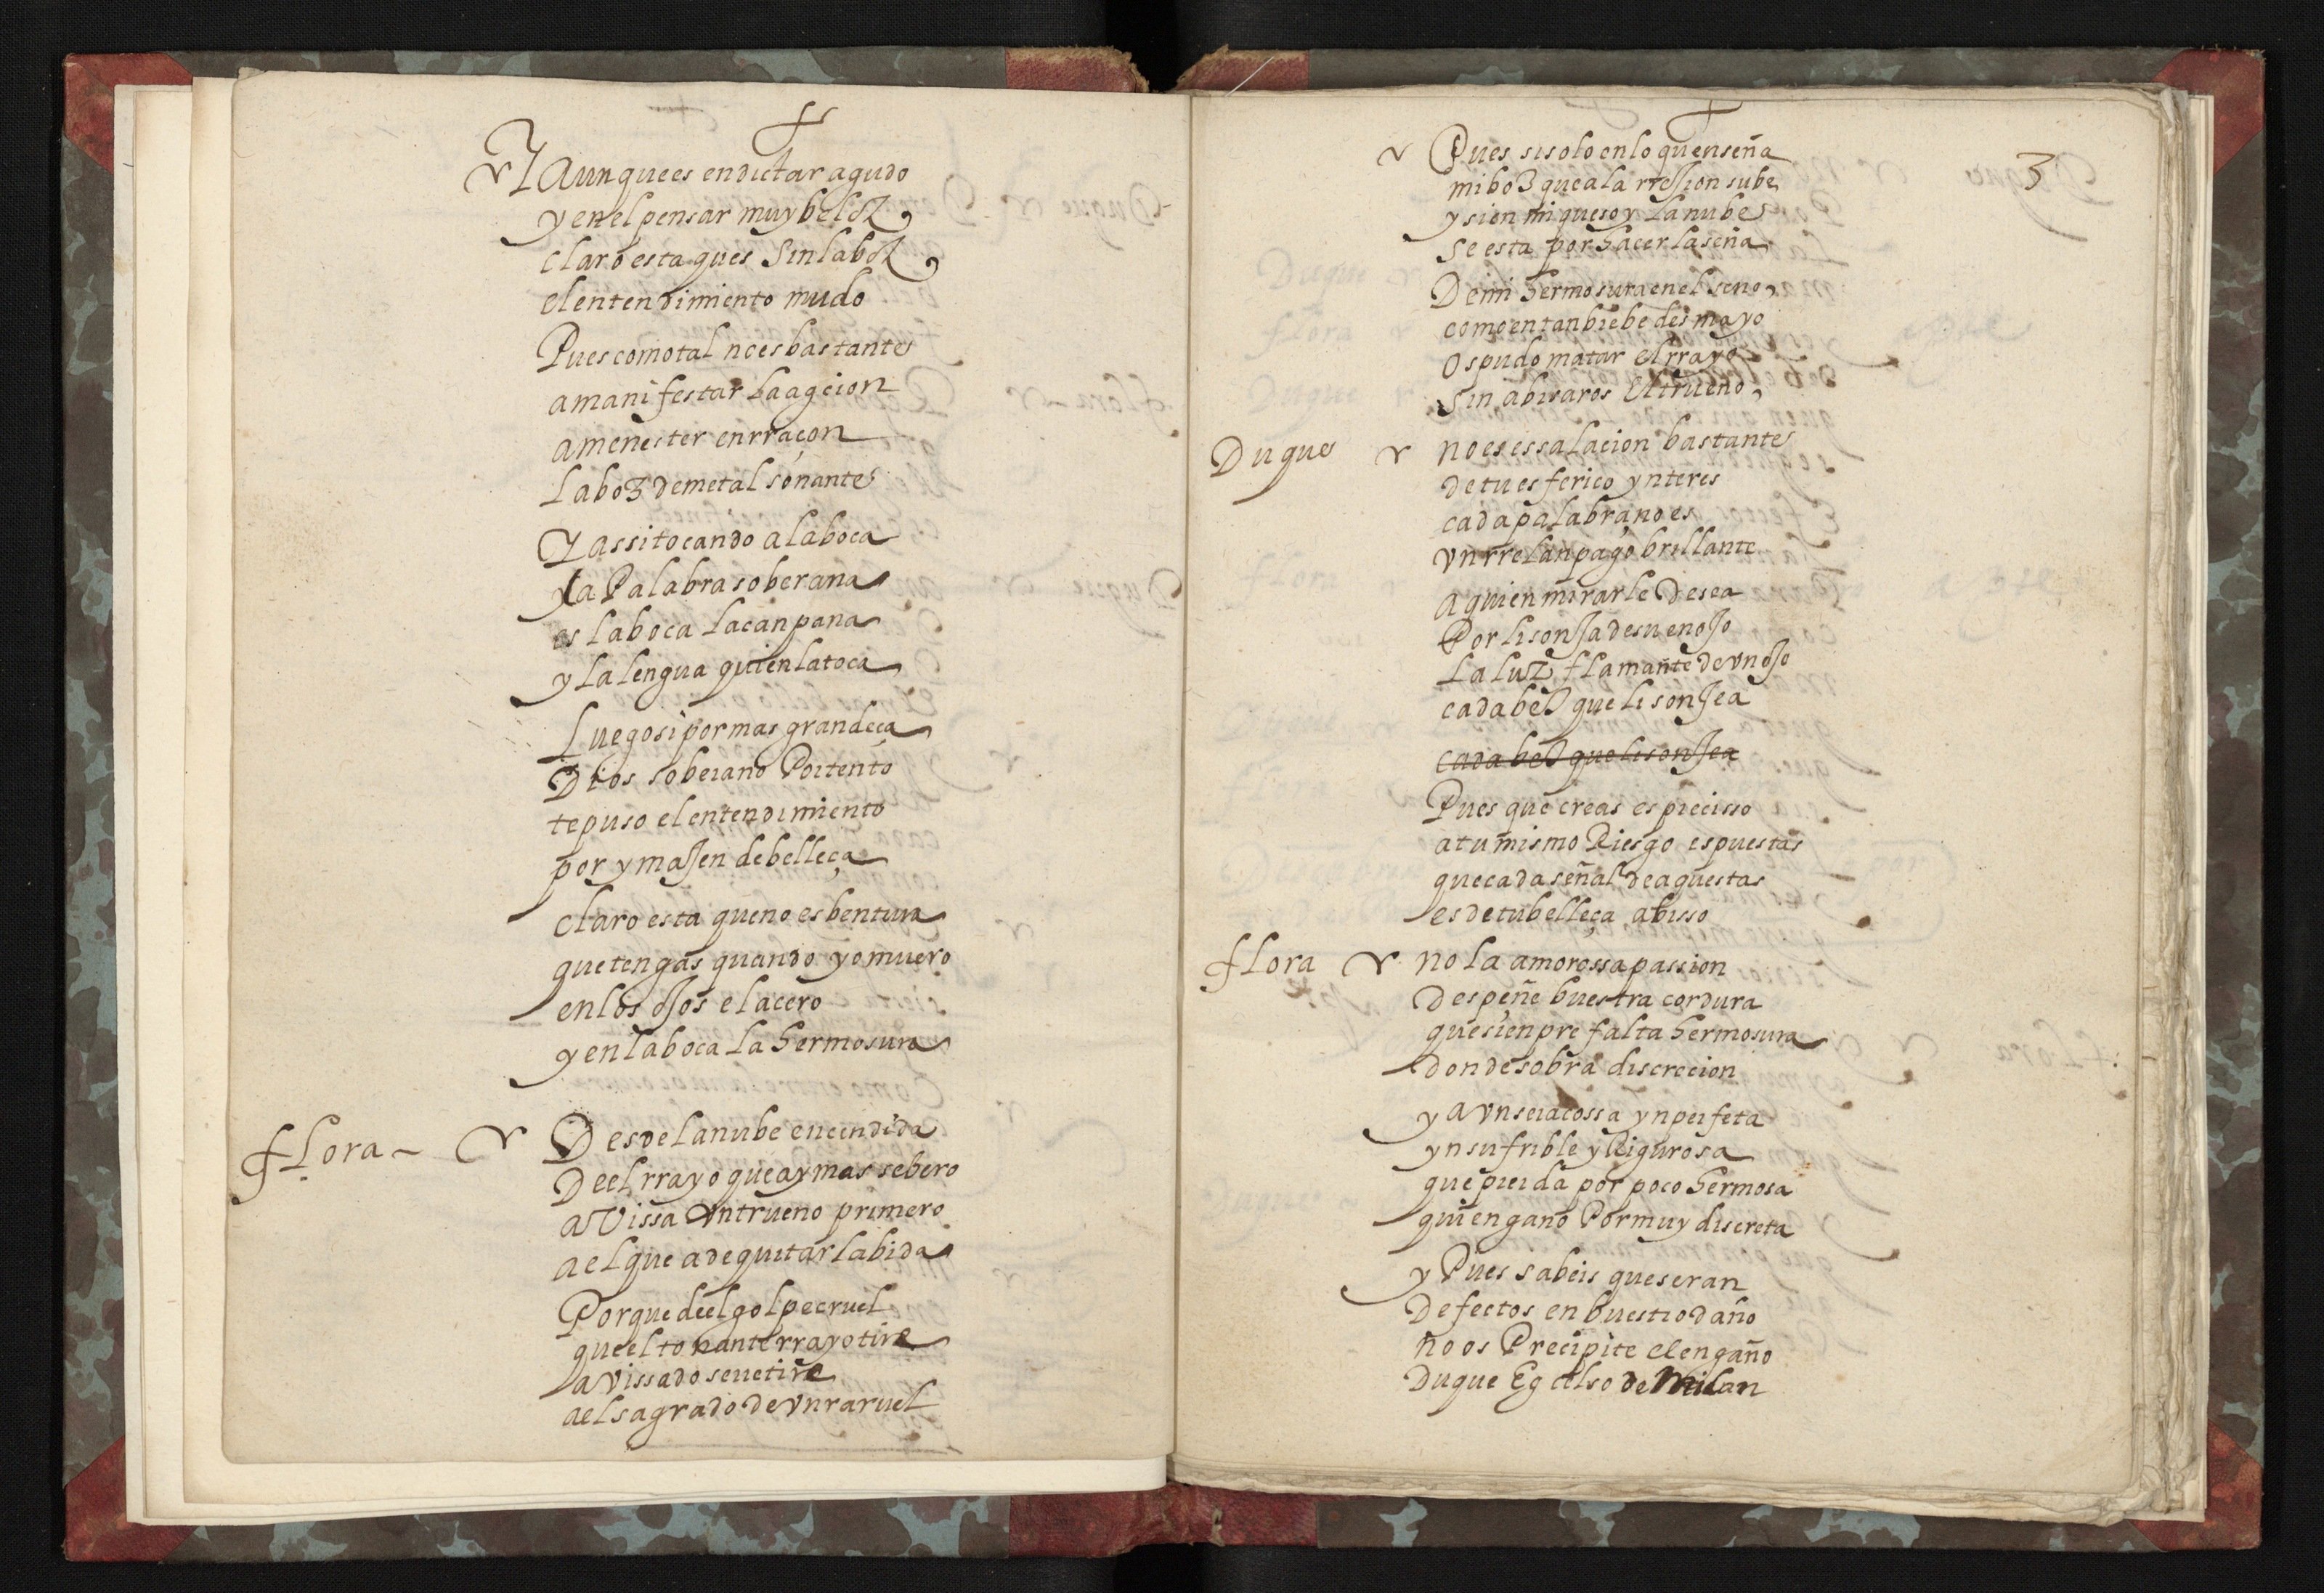 Y Aunque es en dictar agudo
y en el pensar muy beloz
claro esta ques sin la boz
el entendimiento mudo
Pues como tal no es bastante
a manifestar la agcion
a menester en rraçon
La boz de metal sonante
Y assi tocando a la boca
la Palabra soberana
es la boca la canpana
y la lengua quien la toca
Luego si por mas grandeça
Dios soberano Portento
te puso el entendimiento
por ymajen de belleça
claro esta que no es bentura
que tengas quando yo muero
en los ojos el acero
y en la boca la hermosura
flora - Desde la nube encendida
De el rrayo que ay mas sebero
avissa vn trueno primero
a el que a de quitar la bida
Porque de el golpe cruel
que el tonante rrayo tire
avissado se rretire
a el sagrado de vn raruel
3
Pues si solo en lo quenseña
mi boz que a la rrejion sube
y si en mi que soy la nube
se esta por hacer la seña
De mi hermosura en el seno
como en tan biebe desmayo
Os pudo matar el rrayo
Sin abisaros el trueno
Duque no es essalacion bastante
de tu esferico ynteres
cada palabra no es
vn rrelanpago brillante
a quien mirarle Desea
Por lisonja de su enojo
La luz flamante de vn ojo
cada bez que lisonjea
cada bez que lisonjea
Pues que creas es precisso
a tu mismo Riesgo espuestas
que cada señal de aquestas
es de tu belleça abisso
flora no la amorossa passion
Despeñe buestra cordura
que sienpre falta hermosura
donde sobra discrecion
y a vn sera cossa ynperfeta
ynsufrible y Rigurosa
que pierda por poco hermosa
quien gano Por muy discreta
y Pues sabeis que seran
Defectos en buestro daño
no os Precipite el engaño
Duque Egcelso de Milan